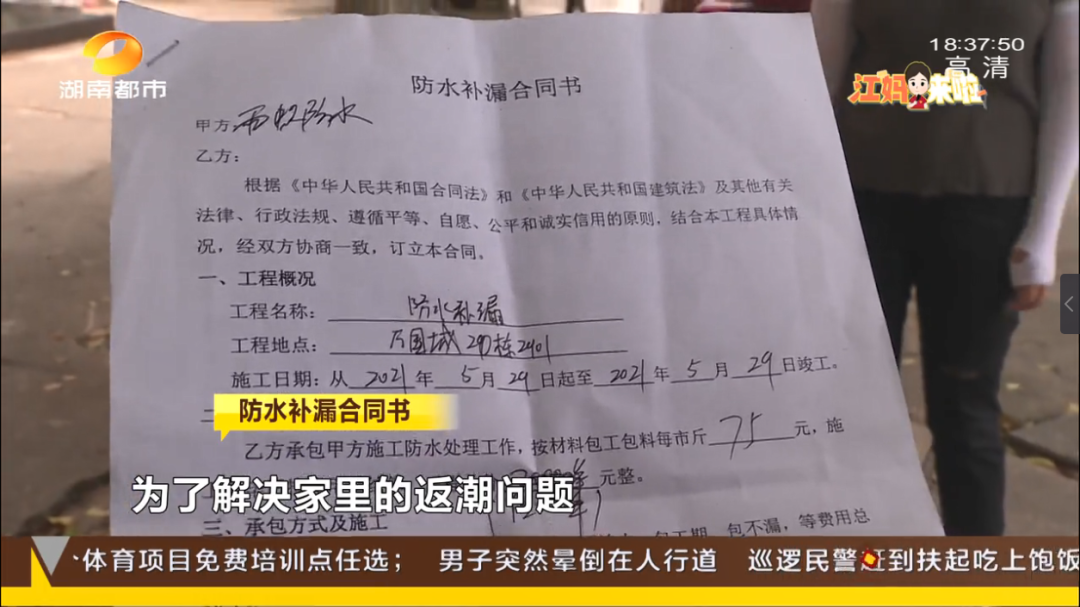 湖南都市
18:37:50
高清
江妈来啦
防水补漏合同书
甲方:雨虹防水
乙方:
根据《中华人民共和国合同法》和《中华人民共和国建筑法》及其他有关
法律、行政法规、遵循平等、自愿、公平和诚实信用的原则,结合本工程具体情
况,经双方协商一致,订立本合同。
一、工程概况
工程名称: 防水补漏
工程地点: 万国城29栋2401
施工日期:从 2021 年 5 月 29 日起至 2021 年 5 月 29 日竣工。
二
防水补漏合同书
乙方承包甲方施工防水处理工作,按材料包工包料每市斤 75 元,施
元整。
为了解决家里的返潮问题
三、承包方式及施工
包工期、包不漏,等费用总
体育项目免费培训点任选; 男子突然晕倒在人行道 巡逻民警赶到扶起吃上饱饭